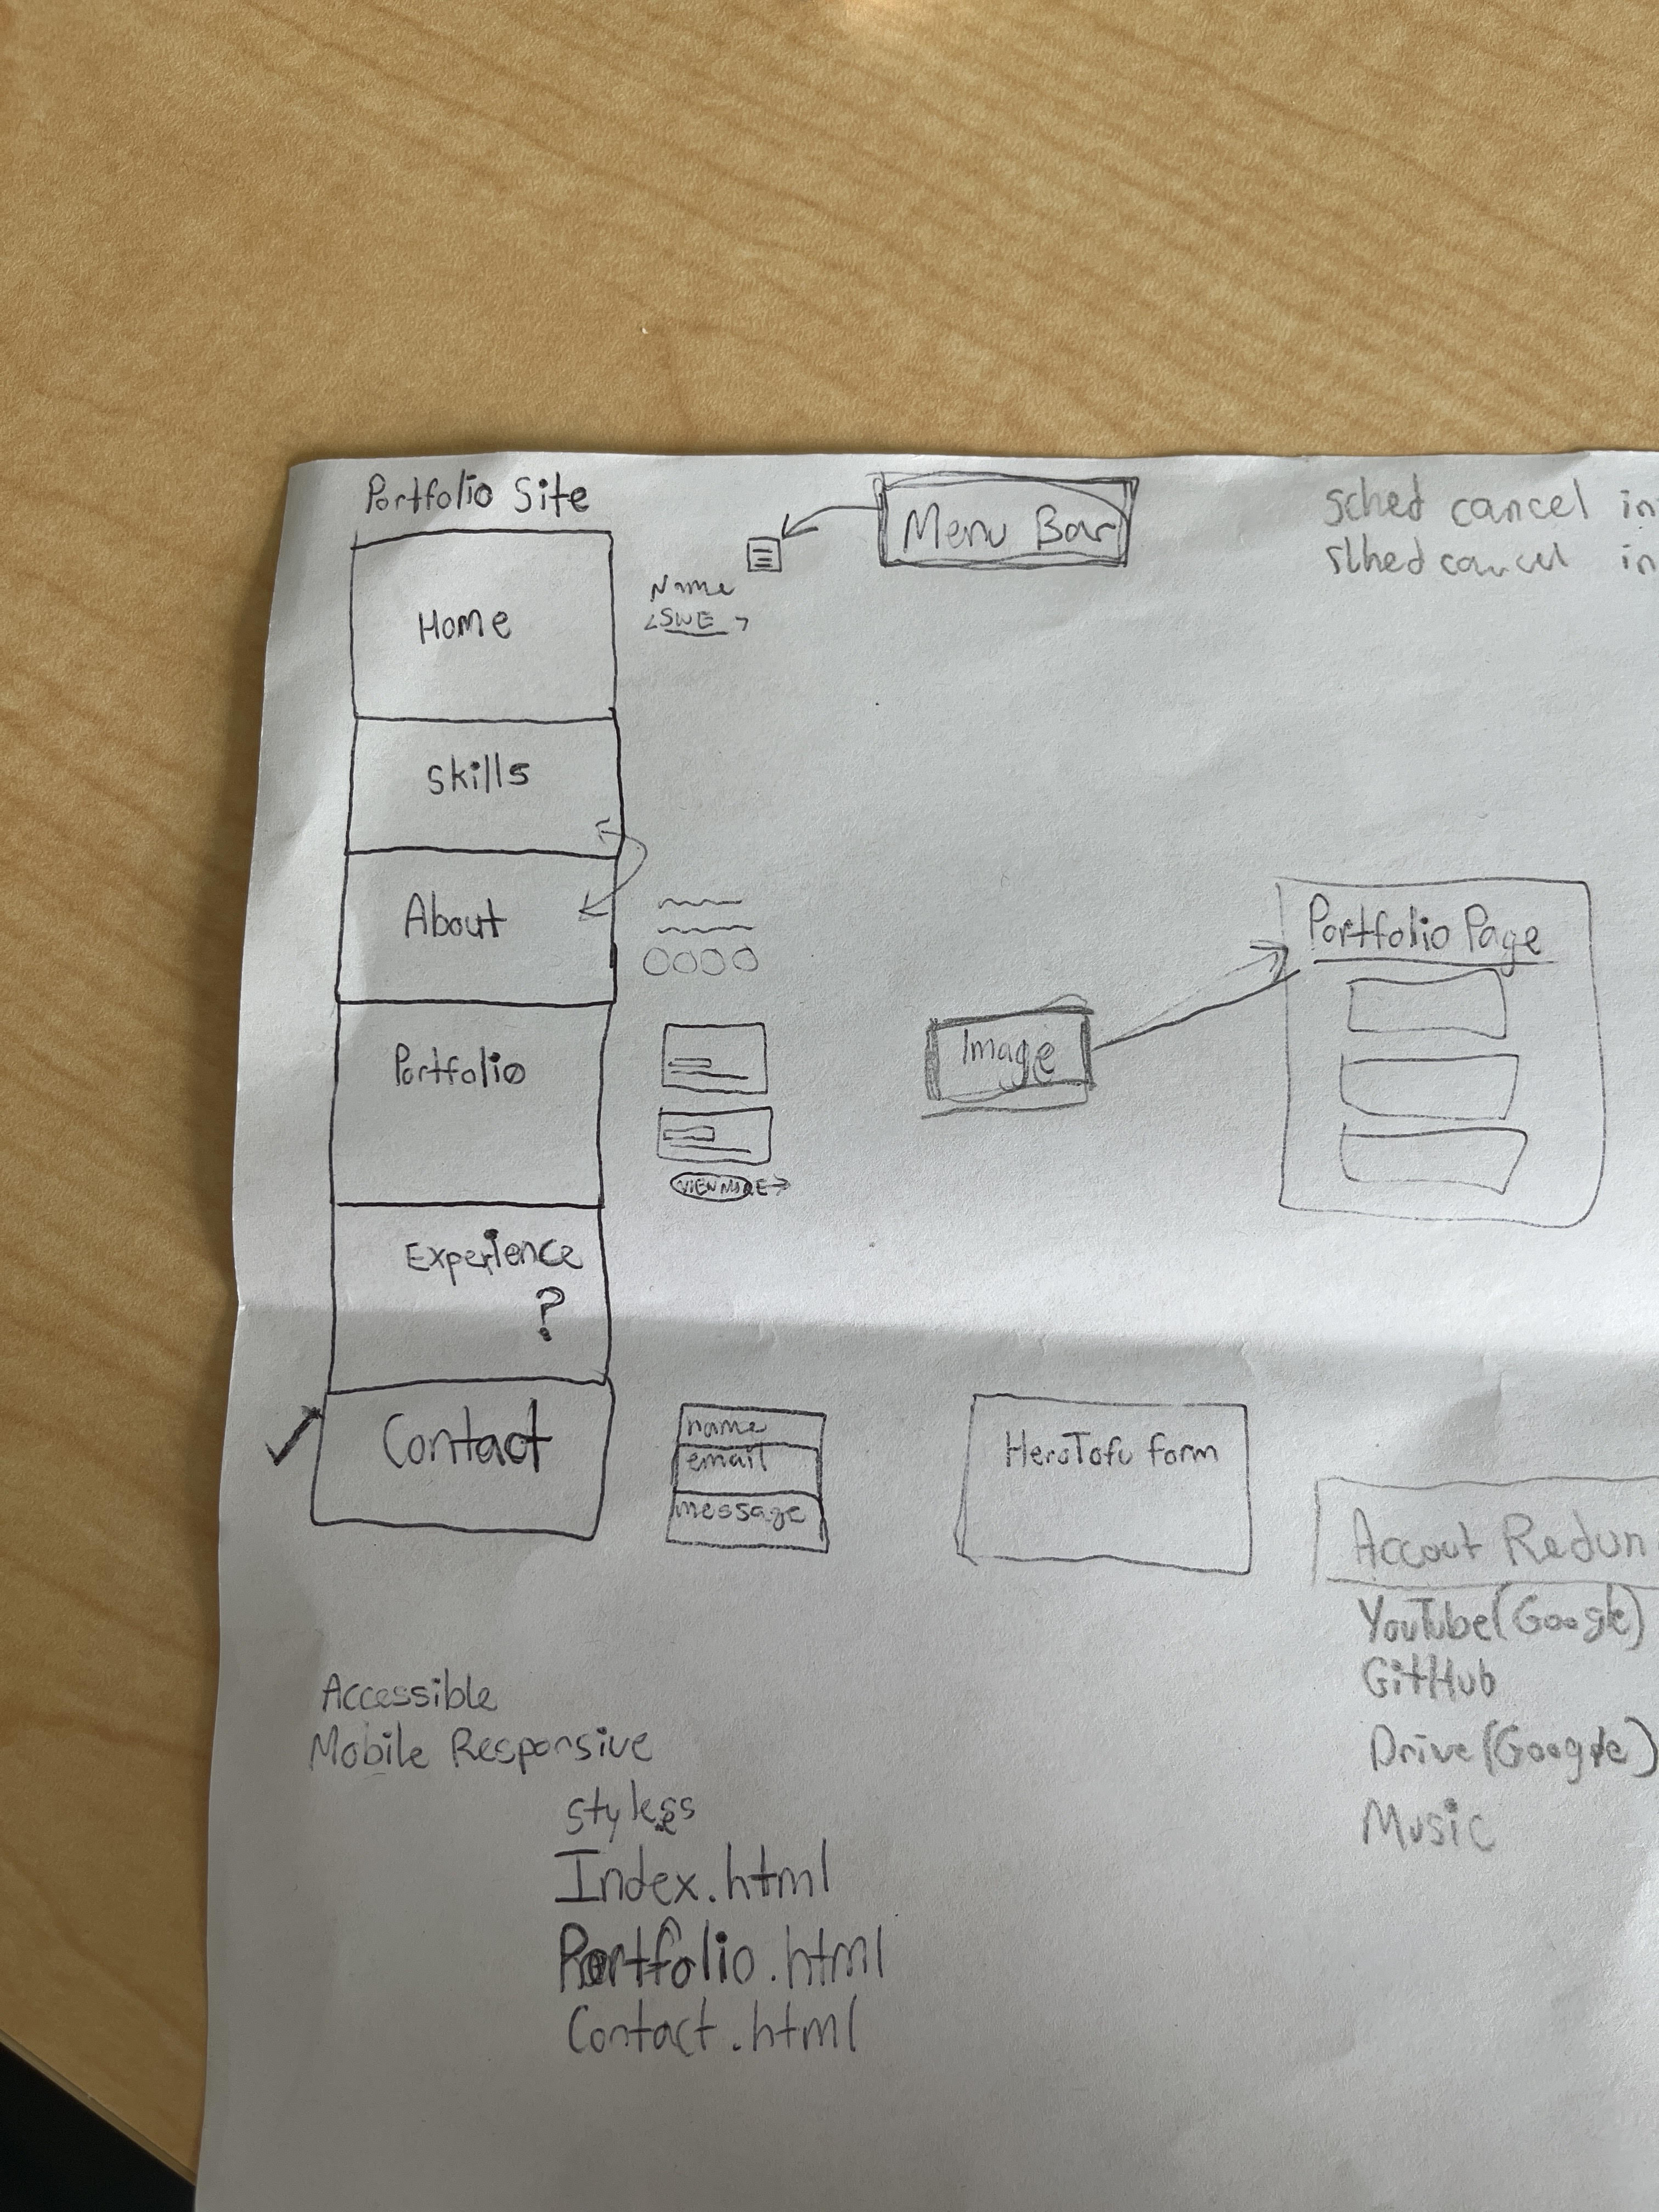 Portfolio Site
Home
Name
<SWE>
Menu Bar
sched cancel in
slhed cancel in
Skills
About
Portfolio
VIEW MORE →
Image
Portfolio Page
Experience
?
✓ Contact
name
email
message
HeroTofu form
Accout Redun
YouTube(Google)
GitHub
Drive(Google)
Music
Accessible
Mobile Responsive
Index.html
Portfolio.html
Contact.html